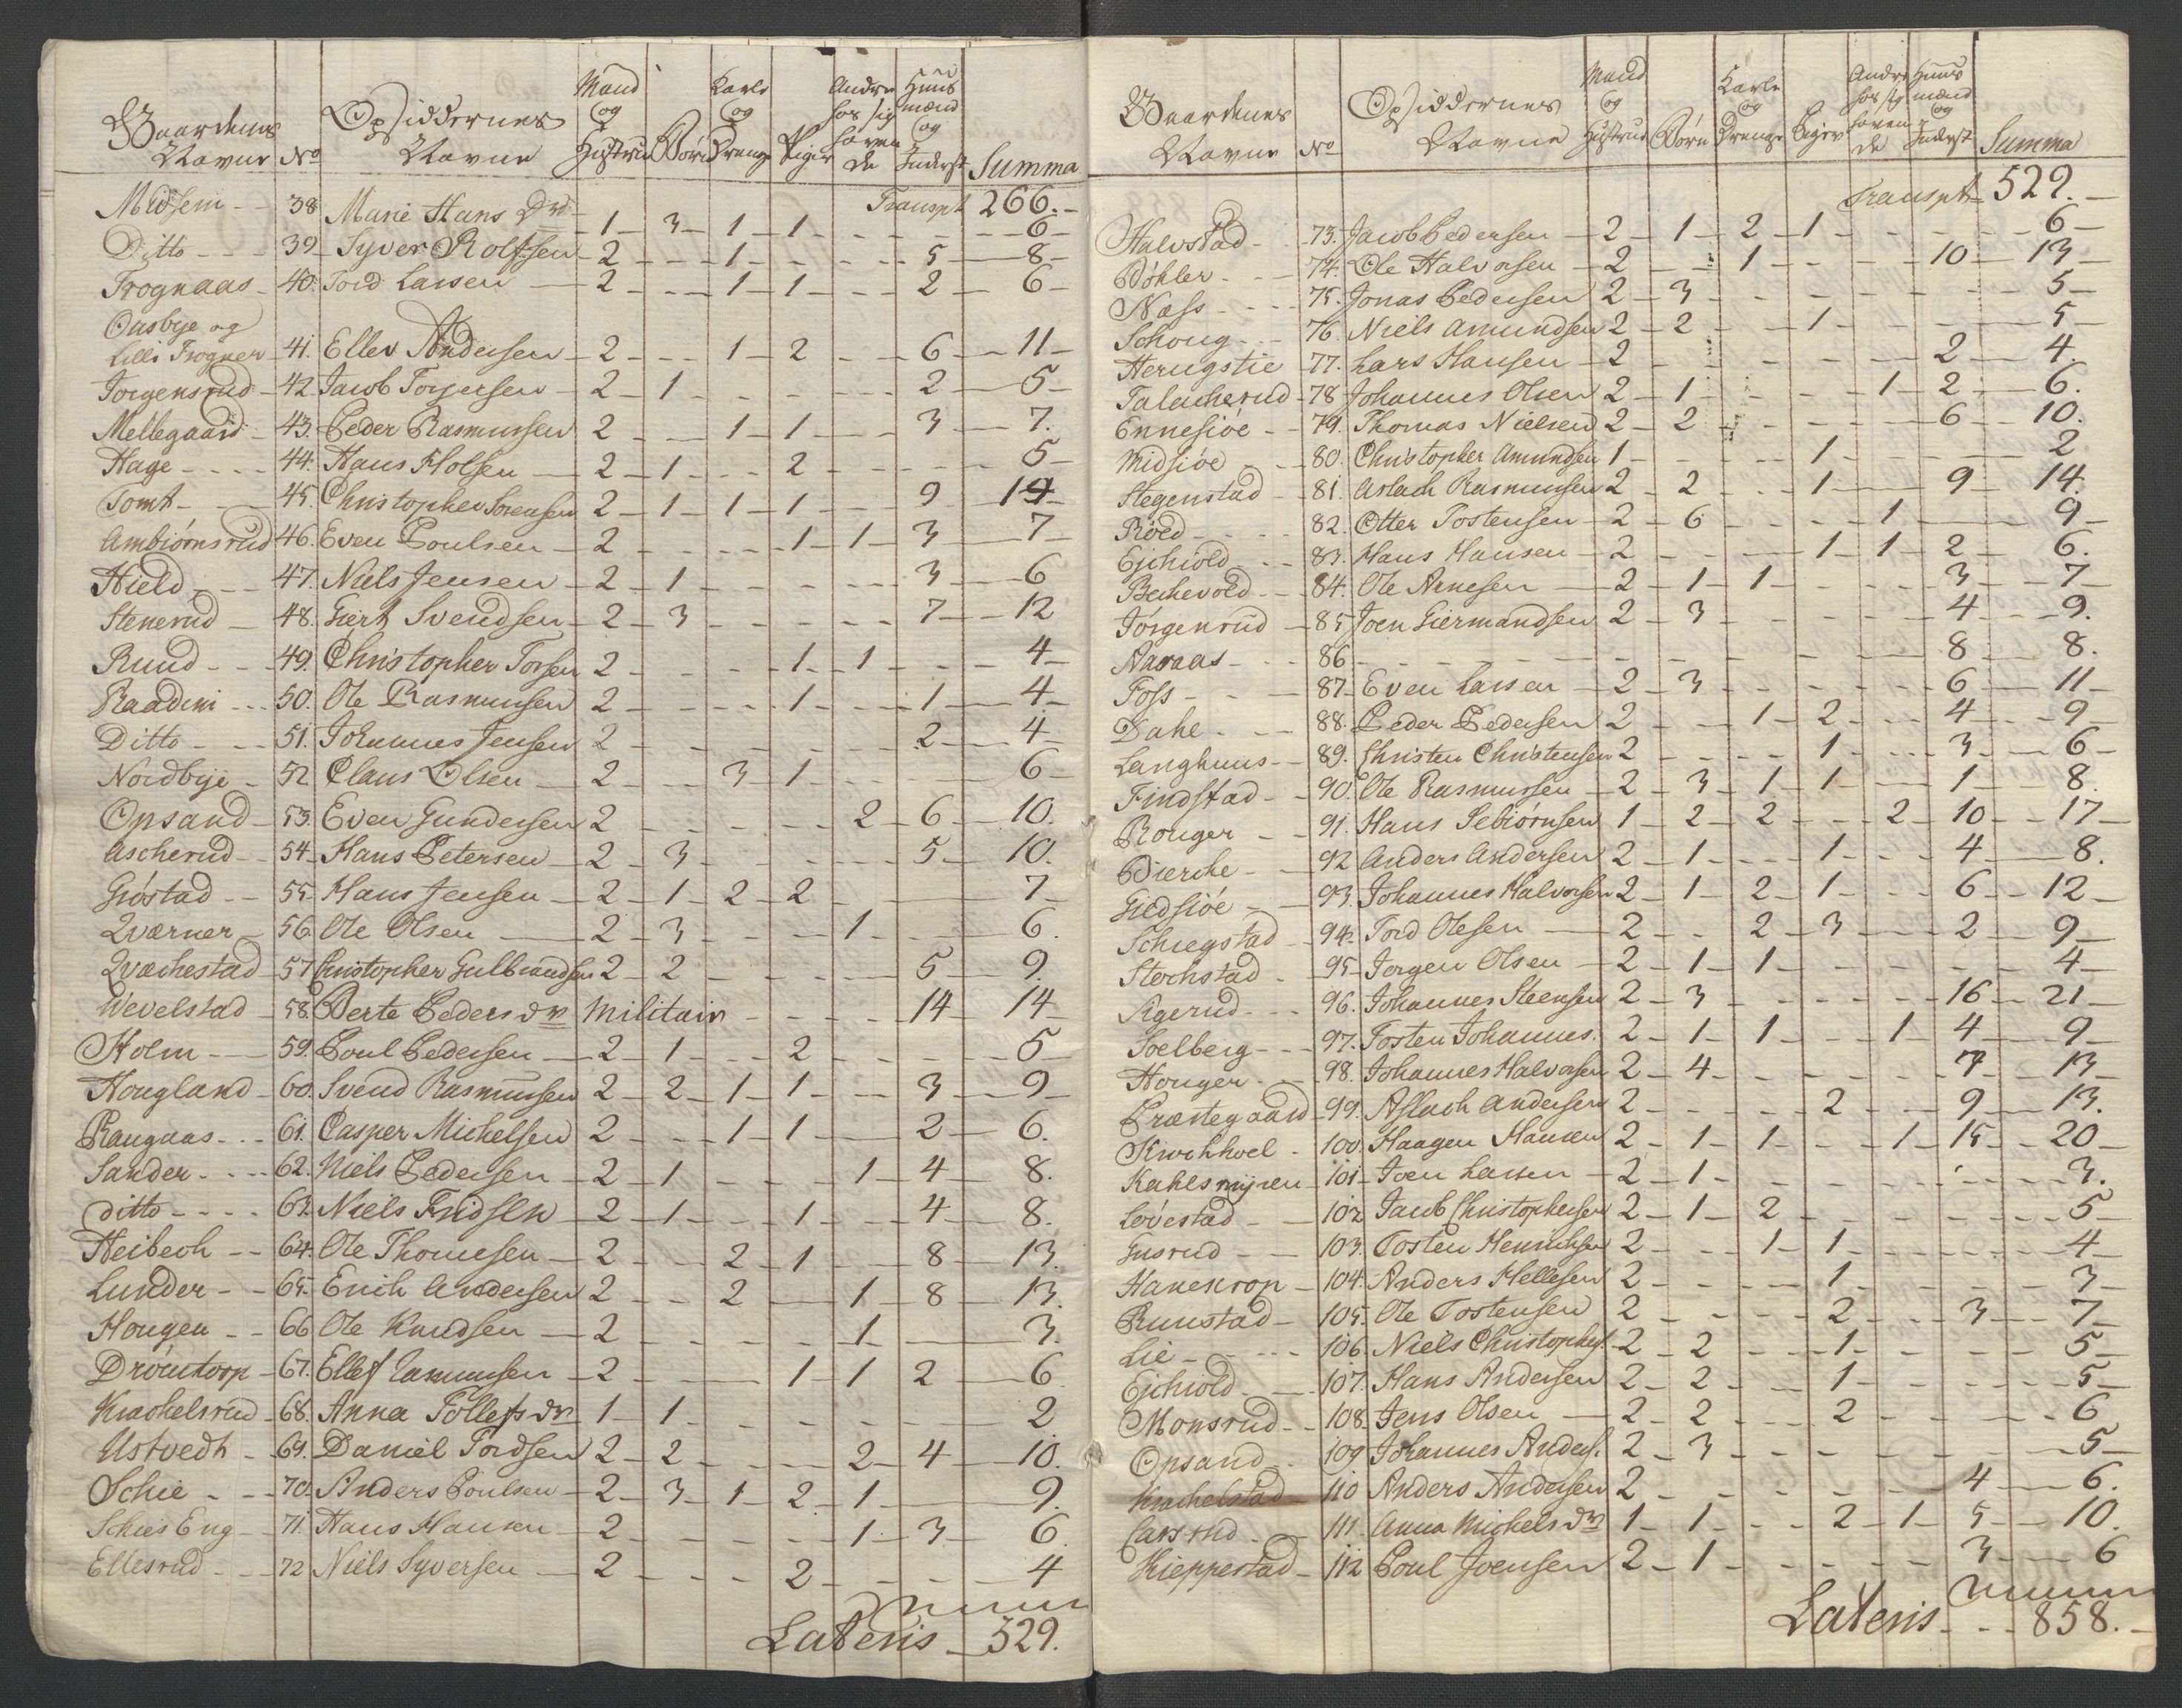 Gaardenes Navne | No | Opsiddernes Navne | Mand og Hustrue | Børn | Karle og Drenge | Piger | Andre hos sig havende | Huusmænd og Inderst | Summa
Transpt 266.
Midsem - - 38 Marie Hans Dr - 1 - 3 - 1 - 1 - - - 6 -
Ditto - - - 39 - Syver Rolfsen - 2 - - - 1 - - - - 5 - 8 -
Frognaas - 40. Tord Larsen - 2 - - - 1 - 1 - - - 2 - 6 -
Ousbye og
Lille Frogner - 41. Ellev Andersen - 2 - - - 1 - 2 - - 6 - 11 -
Jorgensrud - 42. Jacob Torgersen - 2 - 1 - - - - 2 - 5 -
Mellegaard - 43. Peder Rasmussen 2 - - - 1 - 1 - - 3 - 7.
Hage - - - - 44. Hans Holsen - 2 - 1 - - 2 - - - - 5 -
Tomt - - - 45. Christopher Sørensen 2 - 1 - 1 - 1 - - - 9 - 14 -
Ambiørnsrud 46. Even Poulsen - 2 - - - - 1 - 1 - 3 - 7 -
Hield - - - 47. Niels Jensen - 2 - 1 - - - - - 3 - 6
Stenerud - 48. Giert Svendsen - 2 - 3 - - - - - 7 - 12
Ruud - - - 49. Christopher Torsen 2 - - - - 1 - 1 - - - 4 -
Raadeni - - - 50. Ole Rasmussen 2 - - - - 1 - - 1 - 4 -
Ditto - - - 51. Johannes Jensen 2 - - - - - - 2 - 4 -
Nordbye - 52 Claus Olsen - 2 - - 3 - 1 - - - - 6 -
Opsand - 53. Even Gundersen 2 - - - - - 2 - 6 - 10.
Ascherud - - 54 - Hans Petersen - 2 - 3 - - - - - 5 - 10.
Giøstad - - 55 - Hans Jensen - 2 - 1 - 2 - 2 - - - 7 -
Qværner - 56. Ole Olsen - 2 - 3 - - - 1 - - 6.
Qvæchestad - 57 Christopher Gulbrandsen 2 - 2 - - - - 5 - 9.
Wevelstad - 58. Berte Pedersdr Militair - - - - 14 - 14 -
Holm - - 59. Poul Pedersen - 2 - 1 - - 2 - - - - 5 -
Hougland - 60. Svend Rasmussen 2 - 2 - 1 - 1 - - 3 - 9 -
Raugaas - - - 61. Casper Michelsen 2 - - 1 - 1 - - 2 - 6.
Sander - - - - 62. Niels Pedersen - 2 - 1 - - - - 1 - 4 - 8.
ditto - - - - 63. Niels Fridsen - 2 - 1 - - 1 - - - 4 - 8.
Heibech - - 64. Ole Thomesen - 2 - - 2 - 1 - - 8 - 13.
Lunder - - 65. Erich Andersen 2 - - 2 - - 1 - 8 - 13.
Hougen - - 66 Ole Knudsen - 2 - - - - - 1 - - 3.
Drömtorp - 67. Ellef Rasmussen - 2 - - - 1 - 1 - 2 - 6
Krachelsrud - 68. Anna Tollefsdr - 1 - 1 - - - - - 2
Ustvedt - 69. Daniel Tordsen 2 - 2 - - - - 2 - 4 - 10.
Schie - - - 70. Anders Poulsen - 2 - 3 - 1 - 2 - 1 - - 9.
Schies Eng - 71. Hans Hansen - 2 - - - - - 1 - 3 - 6
Ellesrud - - - 72 Niels Syversen - 2 - - - - 2 - - - - 4
Lateris - 529.
Gaardenes Navne | No | Opsiddernes Navne | Mand og Hustrue | Børn | Karle og Drenge | Piger | Andre hos sig havende | Huusmænd og Inderst | Summa
Transpt 529. -
Halvstad - - 73. Jacob Pedersen - 2 - 1 - 2 - 1 - - - - 6 -
Bøhler - - - 74. Ole Halvorsen - 2 - - 1 - - - 10 - 13 -
Næss - - - - 75. Jonas Pedersen 2 - 3 - - - - - 5 -
Schoug - - - 76. Niels Amundsen 2 - 2 - - - 1 - - - 5 -
Herugstie - 77. Lars Hansen - 2 - - - - - 2 - 4.
Talacherud - 78 Johannes Olsen 2 - 1 - - - - 1 - 2 - 6.
Ennesiøe - - 79. Thomas Nielsen 2 - 2 - - - - - 6 - 10.
Midsiøe - - 80. Christopher Amundsen 1 - - - - 1 - - - 2
Stegenstad - - 81. Aslach Rasmussen 2 - 2 - - - 1 - - 9 - 14.
Røed - - - - 82. Otter Tostensen - 2 - 6 - - - - 1 - - 9 -
Eichiold - - - 83. Hans Hansen - 2 - - - - 1 - 1 - 2 - 6.
Bechevold - - 84. Ole Arnesen - 2 - 1 - 1 - - - - 3 - 7 -
Jørgenrud - 85 Joen Giermandsen 2 - 3 - - - - - 4 - 9.
Aaraas - - - - 86 - - - - - - - 8 - 8.
Foss - - - - 87. Even Larsen - 2 - 3 - - - - - 6 - 11 -
Dahe - - - 88. Peder Pedersen 2 - - - 1 - 2 - - - 4 - 9 -
Langhuus - - 89. Christen Christensen 2 - - - - 1 - - - 3 - 6 -
Findstad - - 90. Ole Rasmussen - 2 - 3 - 1 - 1 - - 1 - 8.
Rouger - - 91. Hans Sebiørnsen 1 - 2 - 2 - - - 2 - 10 - 17 -
Bierche - - 92 Anders Andersen 2 - 1 - - - 1 - - - 4 - 8.
Giedsiøe - - 93. Johannes Halvorsen 2 - 1 - 2 - 1 - - - 6 - 12 -
Schiegstad - 94. Tord Olesen - 2 - - 2 - 3 - - - 2 - 9 -
Stochstad - - 95 - Jørgen Olsen - 2 - 1 - 1 - - - - - 4 -
Agerud - - - 96. Johannes Steensen 2 - 3 - - - - - 16 - 21 -
Soelberg - - - 97. Tosten Johannes. 2 - 1 - 1 - - - 1 - 4 - 9 -
Houger - - - 98. Johannes Halvorsen 2 - 4 - - - - - 7 - 13 -
Præstegaard - 99. Aslach Andersen 2 - - - - 2 - - 9 - 13.
Kirchhoel - 100. Haagen Hansen 2 - 1 - 1 - - - 1 - 15 - 20 -
Kahlsmyren - 101 - Joen Larsen - 2 - 1 - - - - - - 3.
Løvestad - - 102 Jacob Christophersen 2 - 1 - 2 - - - - - 5 -
Gusrud - - - 103. Tosten Henrichsen 2 - - - 1 - 1 - - - - 4 -
Hanekrop - 104. Anders Hellesen 2 - - - - 1 - - - - 3 -
Ruustad - 105. Ole Tostensen 2 - - - - 2 - - 3 - 7 -
Lie - - - - 106. Niels Christophers. 2 - 2 - - - 1 - - - 5 -
Eichiold - - 107. Hans Andersen 2 - 2 - - - 1 - - - - 5 -
Monsrud - - 108. Jens Olsen - 2 - 2 - - - 2 - - - - 6
Opsand - - 109 Johannes Anders. 2 - 3 - - - - - - 5 -
Krachelstad - 110 Anders Andersen 2 - - - - - - 4 - 6.
Carsrud - - 111. Anna Michelsdr 1 - 1 - - - 2 - 1 - 5 - 10.
Kieppestad - 112 Poul Joensen 2 - 1 - - - - - 3 - 6
Lateris - - - 858. -